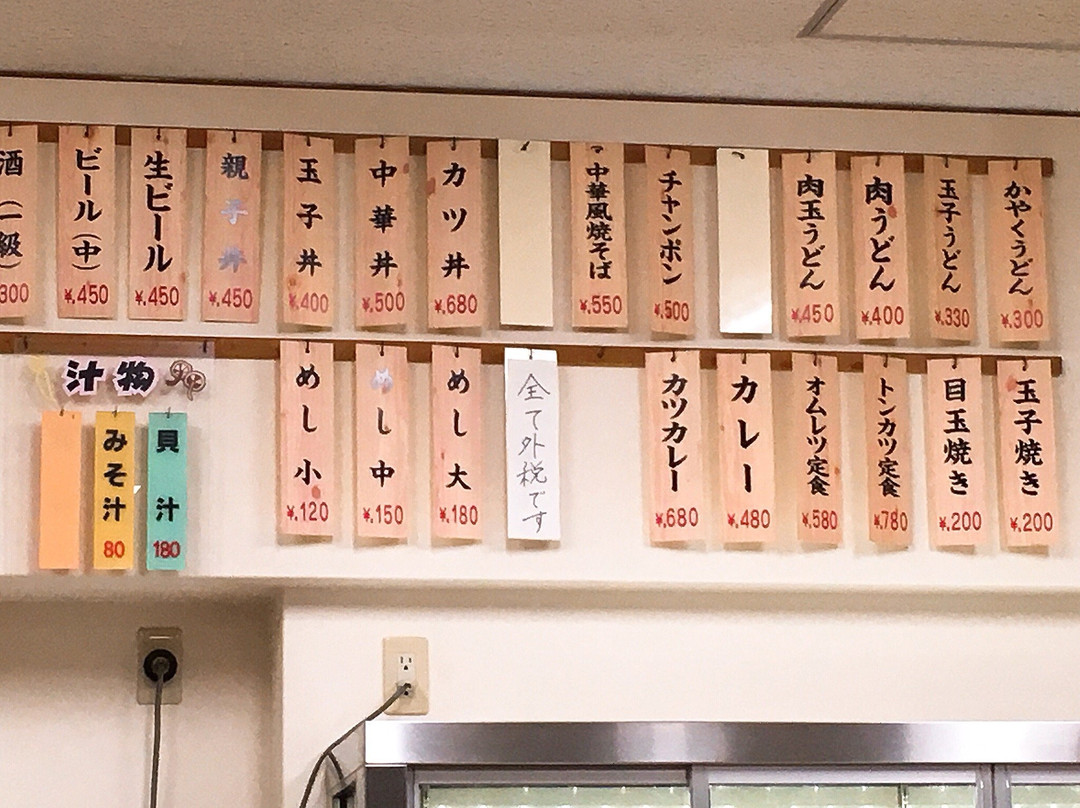 かやくうどん
¥.300
玉子うどん
¥.330
肉うどん
¥.400
肉玉うどん
¥.450
チャンポン
¥.500
中華風焼そば
¥.550
カツ丼
¥.680
中華丼
¥.500
玉子丼
¥.400
親子丼
¥.450
生ビール
¥.450
ビール(中)
¥.450
酒(二級)
300
玉子焼き
¥.200
目玉焼き
¥.200
トンカツ定食
¥.780
オムレツ定食
¥.580
カレー
¥.480
カツカレー
¥.680
全て外税です
めし大
¥.180
めし中
¥.150
めし小
¥.120
汁物
貝汁
180
みそ汁
80